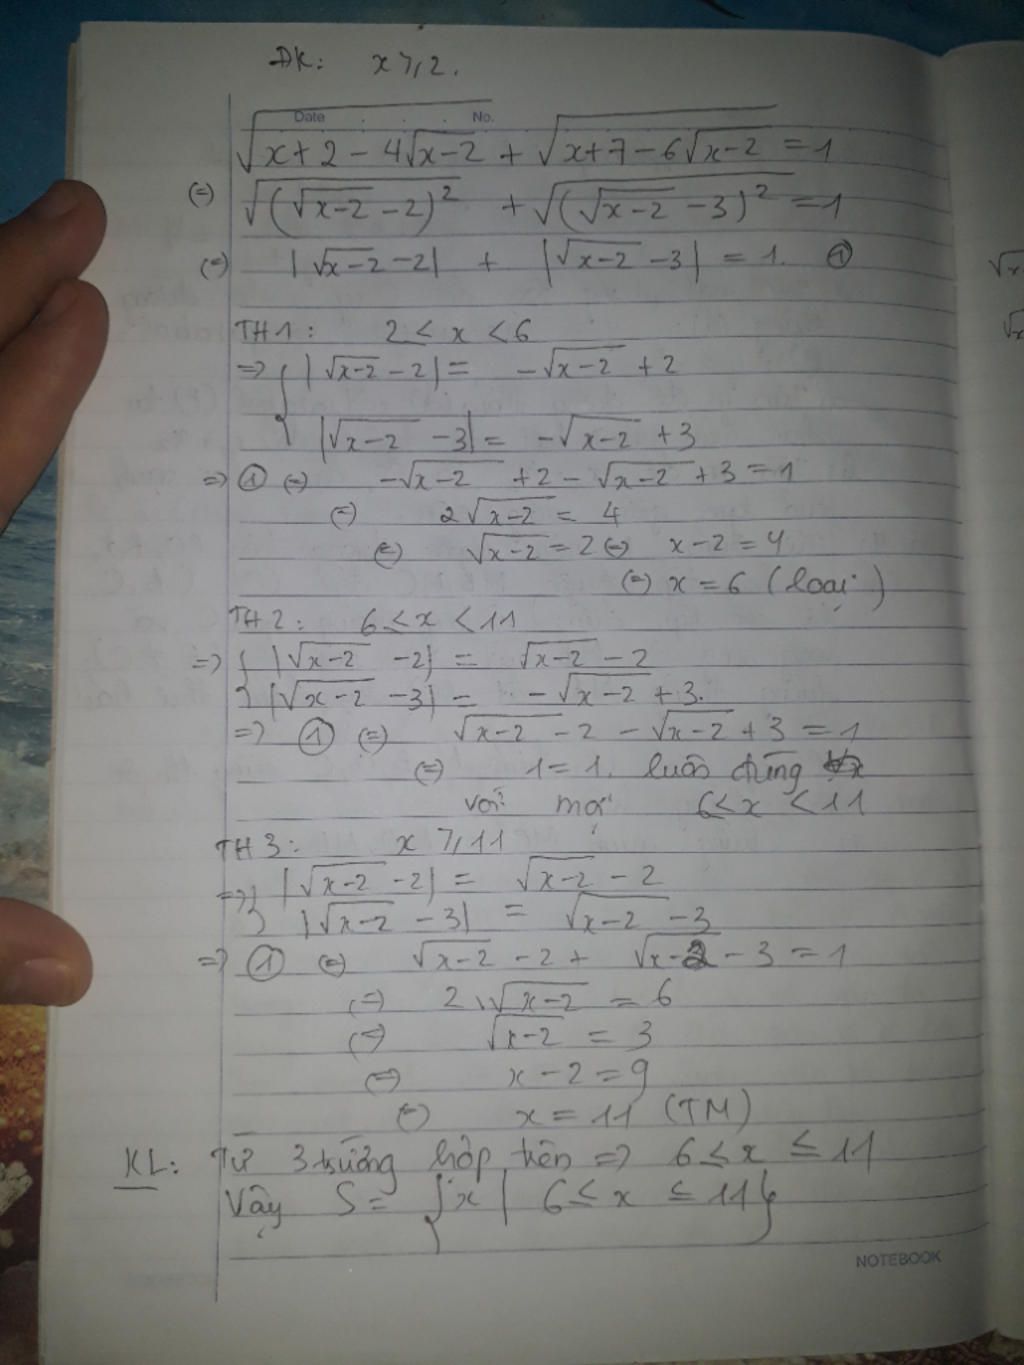 ĐK: x ⩾ 2.
Date . . . No.
√(x+2-4√(x-2)) + √(x+7-6√(x-2)) = 1
(=) √((√(x-2) -2)²) + √((√(x-2) -3)²) = 1
(=) |√(x-2) -2| + |√(x-2) -3| = 1. ①
TH1: 2 ≤ x < 6
=> { |√(x-2) -2| = -√(x-2) + 2
|√(x-2) -3| = -√(x-2) + 3
=> ① (=) -√(x-2) + 2 - √(x-2) + 3 = 1
(=) 2√(x-2) = 4
(=) √(x-2) = 2 (=) x-2 = 4
(=) x = 6 (loại)
TH2: 6 ≤ x < 11
=> { |√(x-2) -2| = √(x-2) - 2
|√(x-2) -3| = -√(x-2) + 3.
=> ① (=) √(x-2) - 2 - √(x-2) + 3 = 1
(=) 1 = 1. luôn đúng
với mọi 6 ≤ x < 11
TH3: x ⩾ 11
=> { |√(x-2) -2| = √(x-2) - 2
|√(x-2) -3| = √(x-2) - 3
=> ① (=) √(x-2) - 2 + √(x-2) - 3 = 1
(=) 2.√(x-2) = 6
(=) √(x-2) = 3
(=) x - 2 = 9
(=) x = 11 (TM)
KL: Từ 3 trường hợp trên => 6 ≤ x ≤ 11
Vậy S = {x | 6 ≤ x ≤ 11}
NOTEBOOK